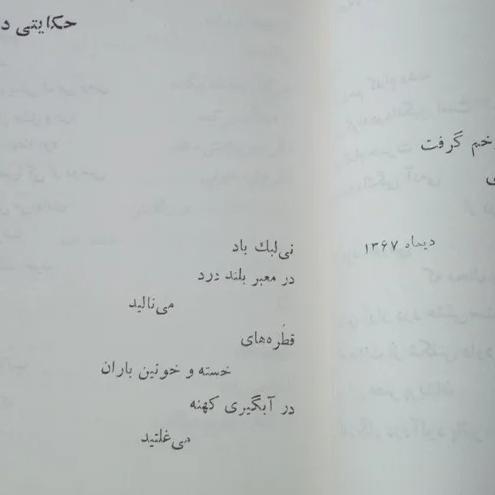 خم گرفت
دیماه ۱۳۶۷
حکایتی
نی‌لبك باد
در معبر بلند درد
می‌نالید
قطره‌های
خسته و خونین باران
در آبگیری کهنه
می‌غلتید